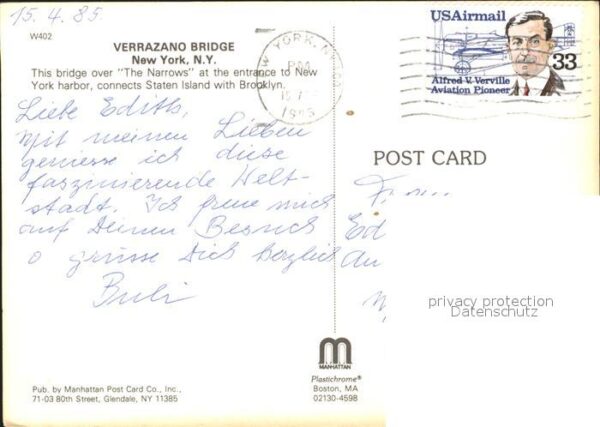 15.4.85
W402
VERRAZANO BRIDGE
New York, N.Y.
This bridge over "The Narrows" at the entrance to New
York harbor, connects Staten Island with Brooklyn.
Liebe Edith,
Mit meinen Lieben
geniesse ich diese
faszinierende Welt-
stadt. Ich freue mich
auf Deinen Besuch
o grüsse Dich herzlich
USAirmail
33
Alfred V. Verville
Aviation Pioneer
YORK, N
1985
POST CARD
Ed
An
privacy protection
Datenschutz
MANHATTAN
Plastichrome®
Boston, MA
02130-4598
Pub. by Manhattan Post Card Co., Inc.,
71-03 80th Street, Glendale, NY 11385